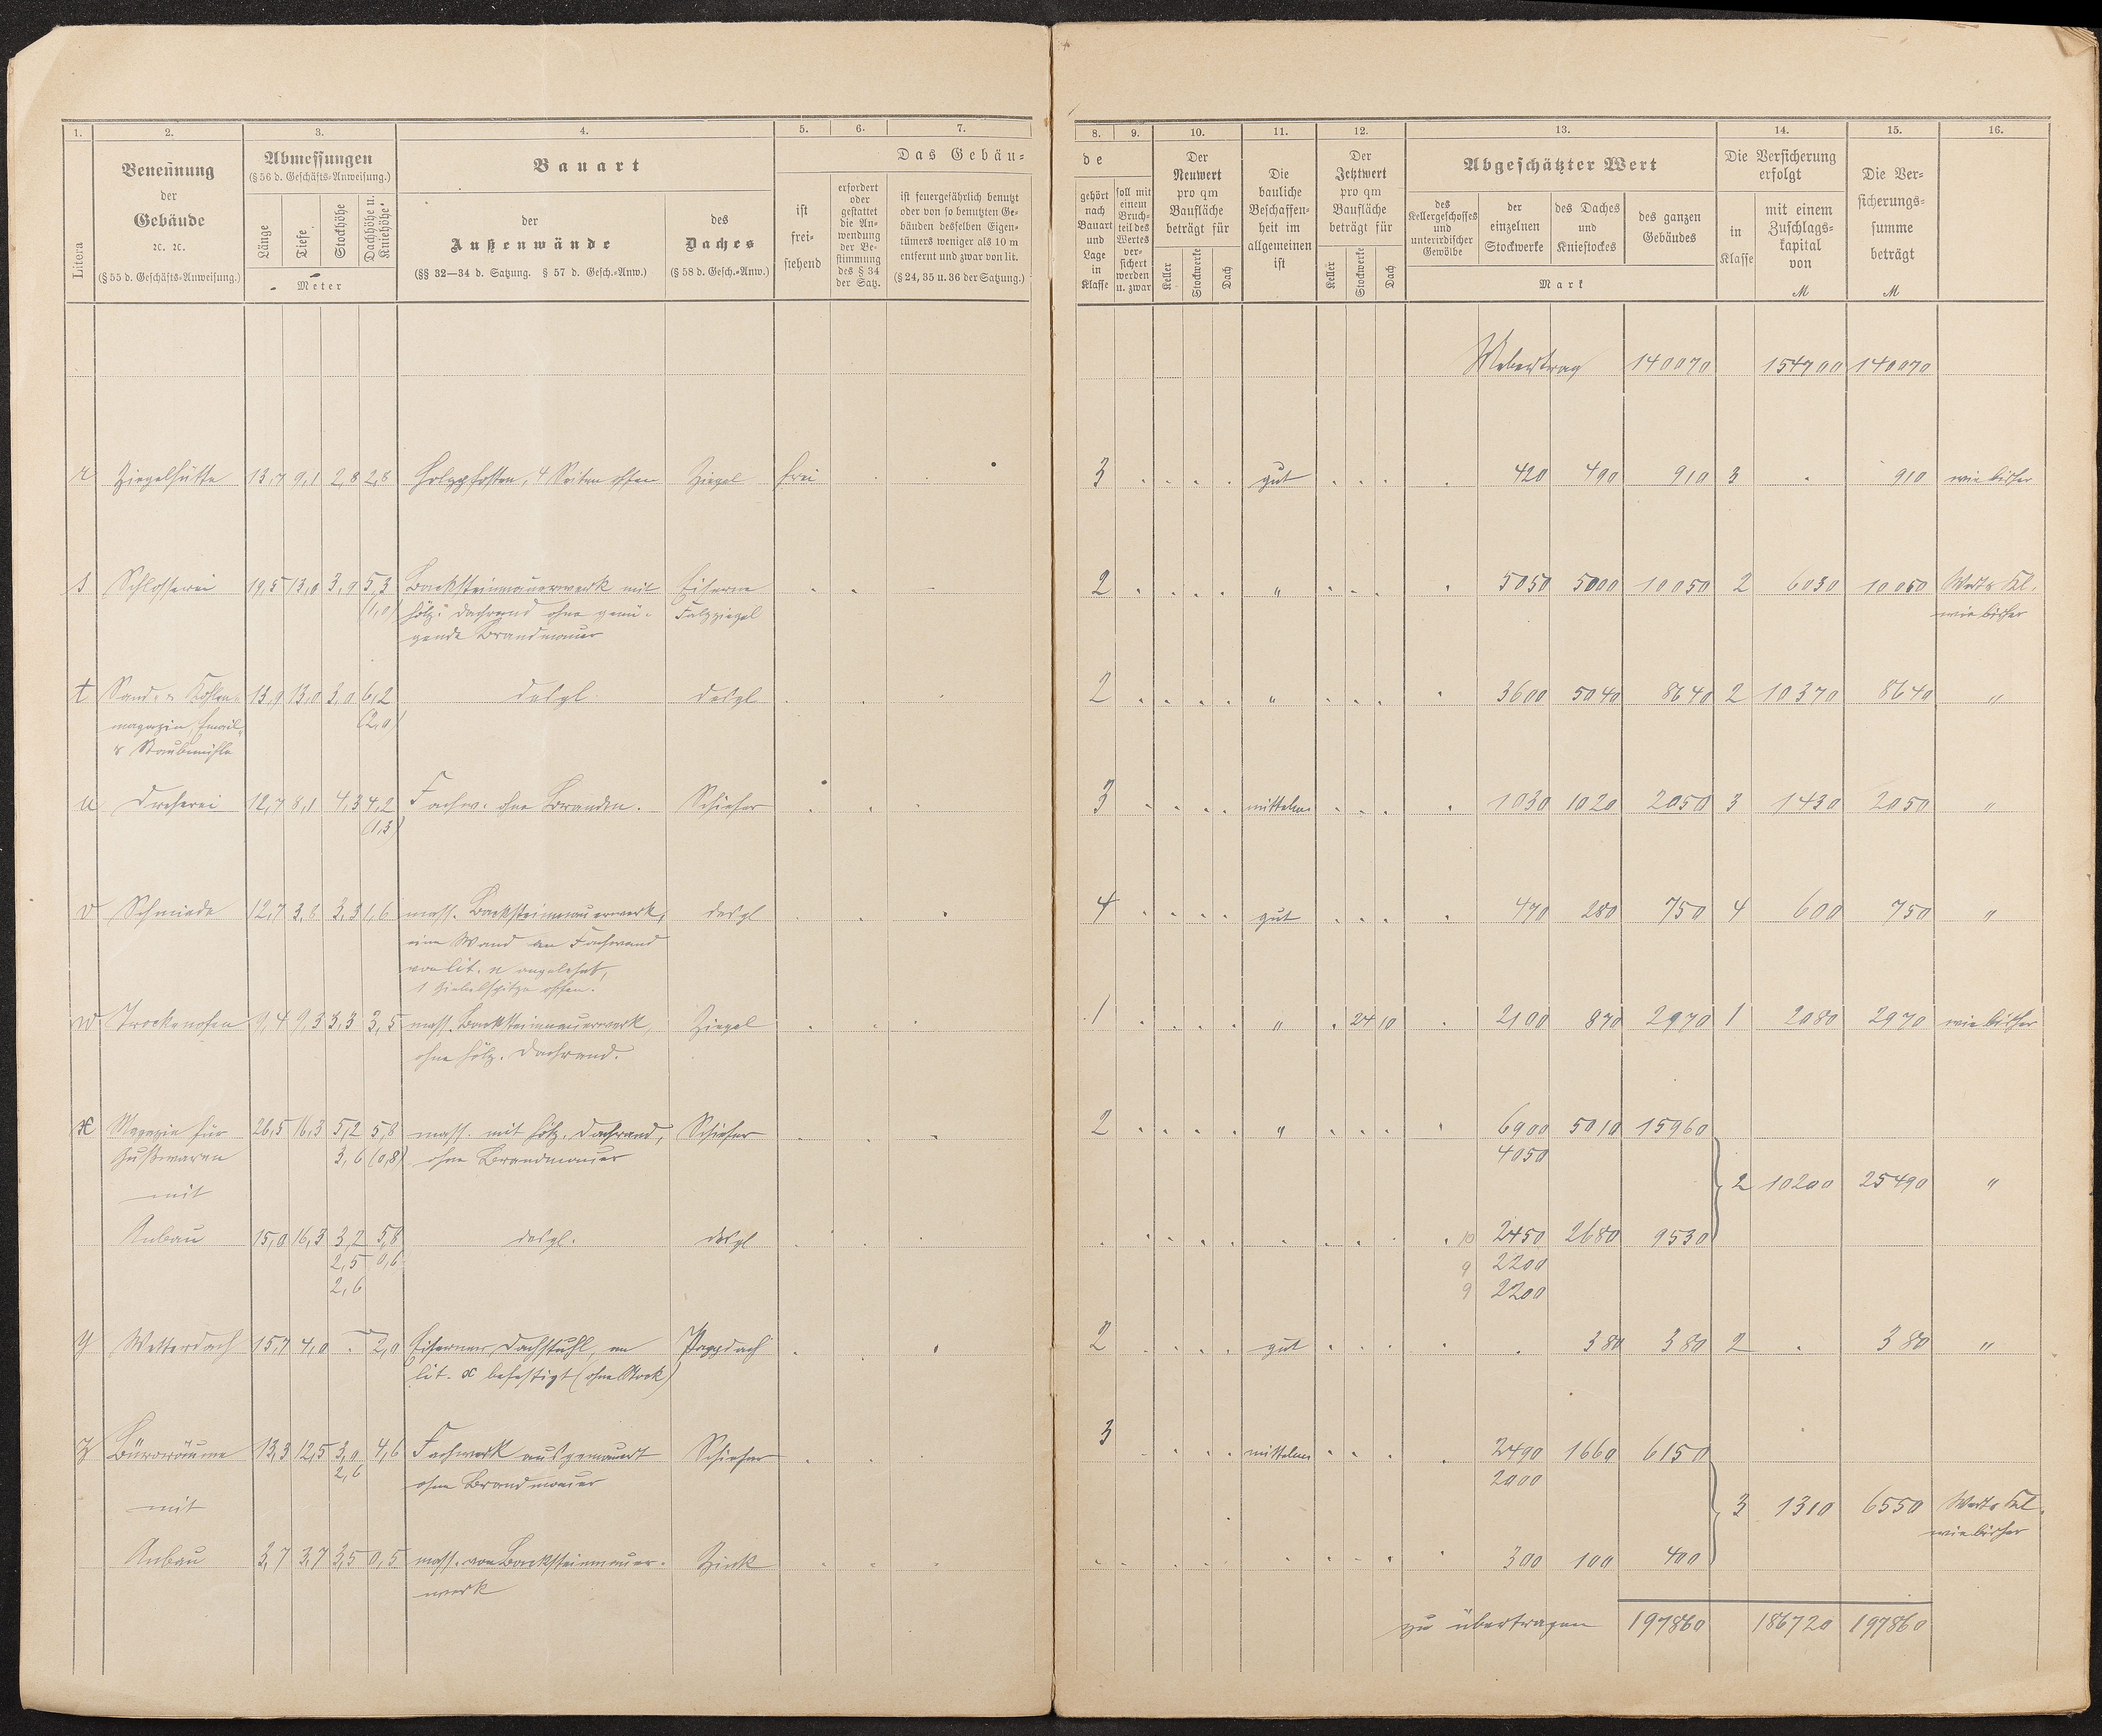 1. 2. 3. 4. 5. 6. 7.
Litera
Benennung
der
Gebäude
ꝛc. ꝛc.
(§ 55 d. Geschäfts-Anweisung.)
Abmessungen
(§ 56 d. Geschäfts-Anweisung.)
Länge Tiefe Stockhöhe Dachhöhe u. Kniehöhe
Meter
Bauart
der
Außenwände
(§§ 32—34 d. Satzung. § 57 d. Gesch.-Anw.)
des
Daches
(§ 58 d. Gesch.-Anw.)
Das Gebäu-
ist
frei-
stehend
erfordert
oder
gestattet
die An-
wendung
der Be-
stimmung
des § 34
der Satz.
ist feuergefährlich benutzt
oder von so benutzten Ge-
bäuden desselben Eigen-
tümers weniger als 10 m
entfernt und zwar von lit.
(§ 24, 35 u. 36 der Satzung.)
8. 9. 10. 11. 12. 13. 14. 15. 16.
de
gehört
nach
Bauart
und
Lage
in
Klasse
soll mit
einem
Bruch-
teil des
Wertes
ver-
sichert
werden
u. zwar
Der
Neuwert
pro qm
Baufläche
beträgt für
Keller Stockwerke Dach
Die
bauliche
Beschaffen-
heit im
allgemeinen
ist
Der
Jetztwert
pro qm
Baufläche
beträgt für
Keller Stockwerke Dach
Abgeschätzter Wert
des
Kellergeschosses
und
unterirdischer
Gewölbe
der
einzelnen
Stockwerke
des Daches
und
Kniestockes
des ganzen
Gebäudes
Mark
Die Versicherung
erfolgt
in
Klasse
mit einem
Zuschlags-
kapital
von
M
Die Ver-
sicherungs-
summe
beträgt
M
Uebertrag 140070 154700 140070
r Ziegelhütte 13,7 9,1 2,8 2,8 Holzpfosten, 4 Seiten offen Ziegel frei 3 gut 420 490 910 3 910 wie bisher
s Schlosserei 19,5 13,0 3,9 5,3 Backsteinmauerwerk mit Eiserne 2 " 5050 5000 10050 2 6030 10050 Wert & Kl.
(1,0) hölz. Dachrand ohne genü- Falzziegel wie bisher
gende Brandmauer
t Sand- & Kohlen- 13,9 13,0 3,0 6,2 desgl. desgl 2 " 3600 5040 8640 2 10370 8640 "
magazin, Email- (2,0)
& Staubmühle
u Dreherei 12,7 8,1 4,3 4,2 Fachw. ohne Brandm. Schiefer 3 mittelm 1030 1020 2050 3 1430 2050 "
(1,3)
v Schmiede 12,7 3,8 3,3 1,6 mass. Backsteinmauerwerk, desgl 4 gut 470 280 750 4 600 750 "
eine Wand an Fachwand
von lit. u angelehnt,
1 Giebelspitze offen.
w Trockenofen 9,4 9,3 3,3 3,5 mass. Backsteinmauerwerk, Ziegel 1 " 24 10 2100 870 2970 1 2080 2970 wie bisher
ohne hölz. Dachrand.
x Magazin für 26,5 16,3 5,2 5,8 mass. mit hölz. Dachrand, Schiefer 2 " 6900 5010 15960
Gußwaren 3,6 (0,8) ohne Brandmauer 4050
mit 2 10200 25490 "
Anbau 15,0 16,3 3,2 5,8 desgl. desgl 10 2450 2680 9530
2,5 0,6 9 2200
2,6 9 2200
y Wetterdach 15,7 4,0 - 2,0 Eiserner Dachstuhl, an Pappdach 2 gut 380 380 2 380 "
lit. x befestigt (ohne Stock)
z Büroräume 13,3 12,5 3,0 4,6 Fachwerk ausgemauert Schiefer 3 mittelm 2490 1660 6150
2,6 ohne Brandmauer 2000
mit 3 1310 6550 Wert & Kl.
wie bisher
Anbau 3,7 3,7 3,5 0,5 mass. von Backsteinmauer- Zink 300 100 400
werk
zu übertragen 197860 186720 197860